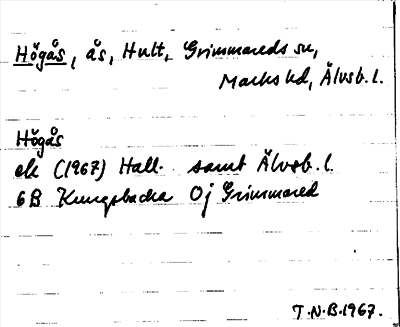 Högås, ås, Hult, Grimmareds sn,
Marks hd, Älvsb. l.
Högås
ek (1967) Hall. samt Älvsb. l.
6B Kungsbacka 0j Grimmared
T.N.B. 1967.